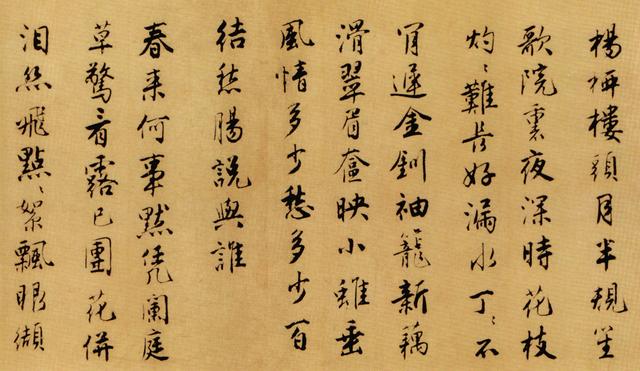 楊栁樓頭月半規笙
歌院裏夜深時花枝
灼〻難長好漏水丁〻不
肯遲金釧袖籠新藕
滑翠眉奩映小垂
風情多少愁多少百
結愁腸説與誰
春来何事默凭闌庭
草驚看露已團花併
泪絲飛點〻絮飄眼纈